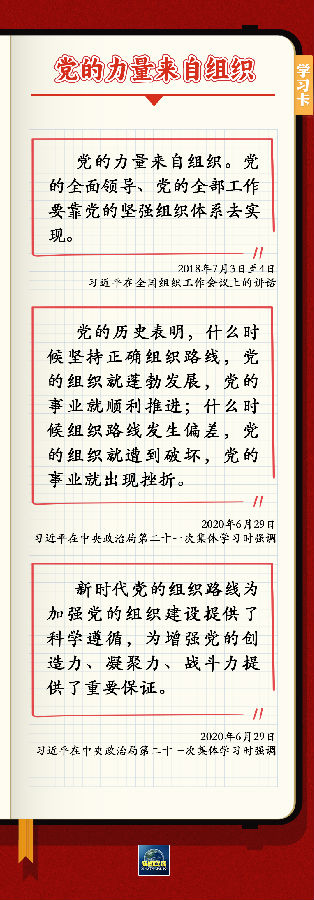 学习卡
党的力量来自组织
党的力量来自组织。党
的全面领导、党的全部工作
要靠党的坚强组织体系去实
现。
2018年7月3日至4日
习近平在全国组织工作会议上的讲话
党的历史表明，什么时
候坚持正确组织路线，党
的组织就蓬勃发展，党的
事业就顺利推进；什么时
候组织路线发生偏差，党
的组织就遭到破坏，党的
事业就出现挫折。
2020年6月29日
习近平在中央政治局第二十一次集体学习时强调
新时代党的组织路线为
加强党的组织建设提供了
科学遵循，为增强党的创
造力、凝聚力、战斗力提
供了重要保证。
2020年6月29日
习近平在中央政治局第二十一次集体学习时强调